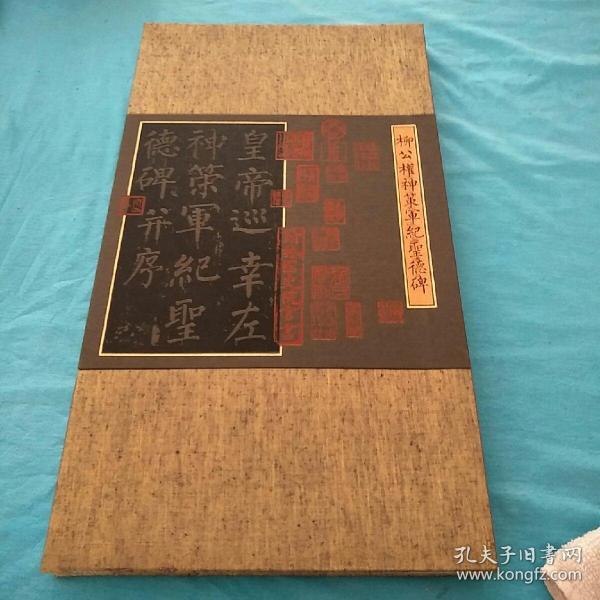 柳公權神策軍紀聖德碑
皇帝巡幸左
神策軍紀聖
德碑并序
孔夫子旧书网
www.kongfz.com